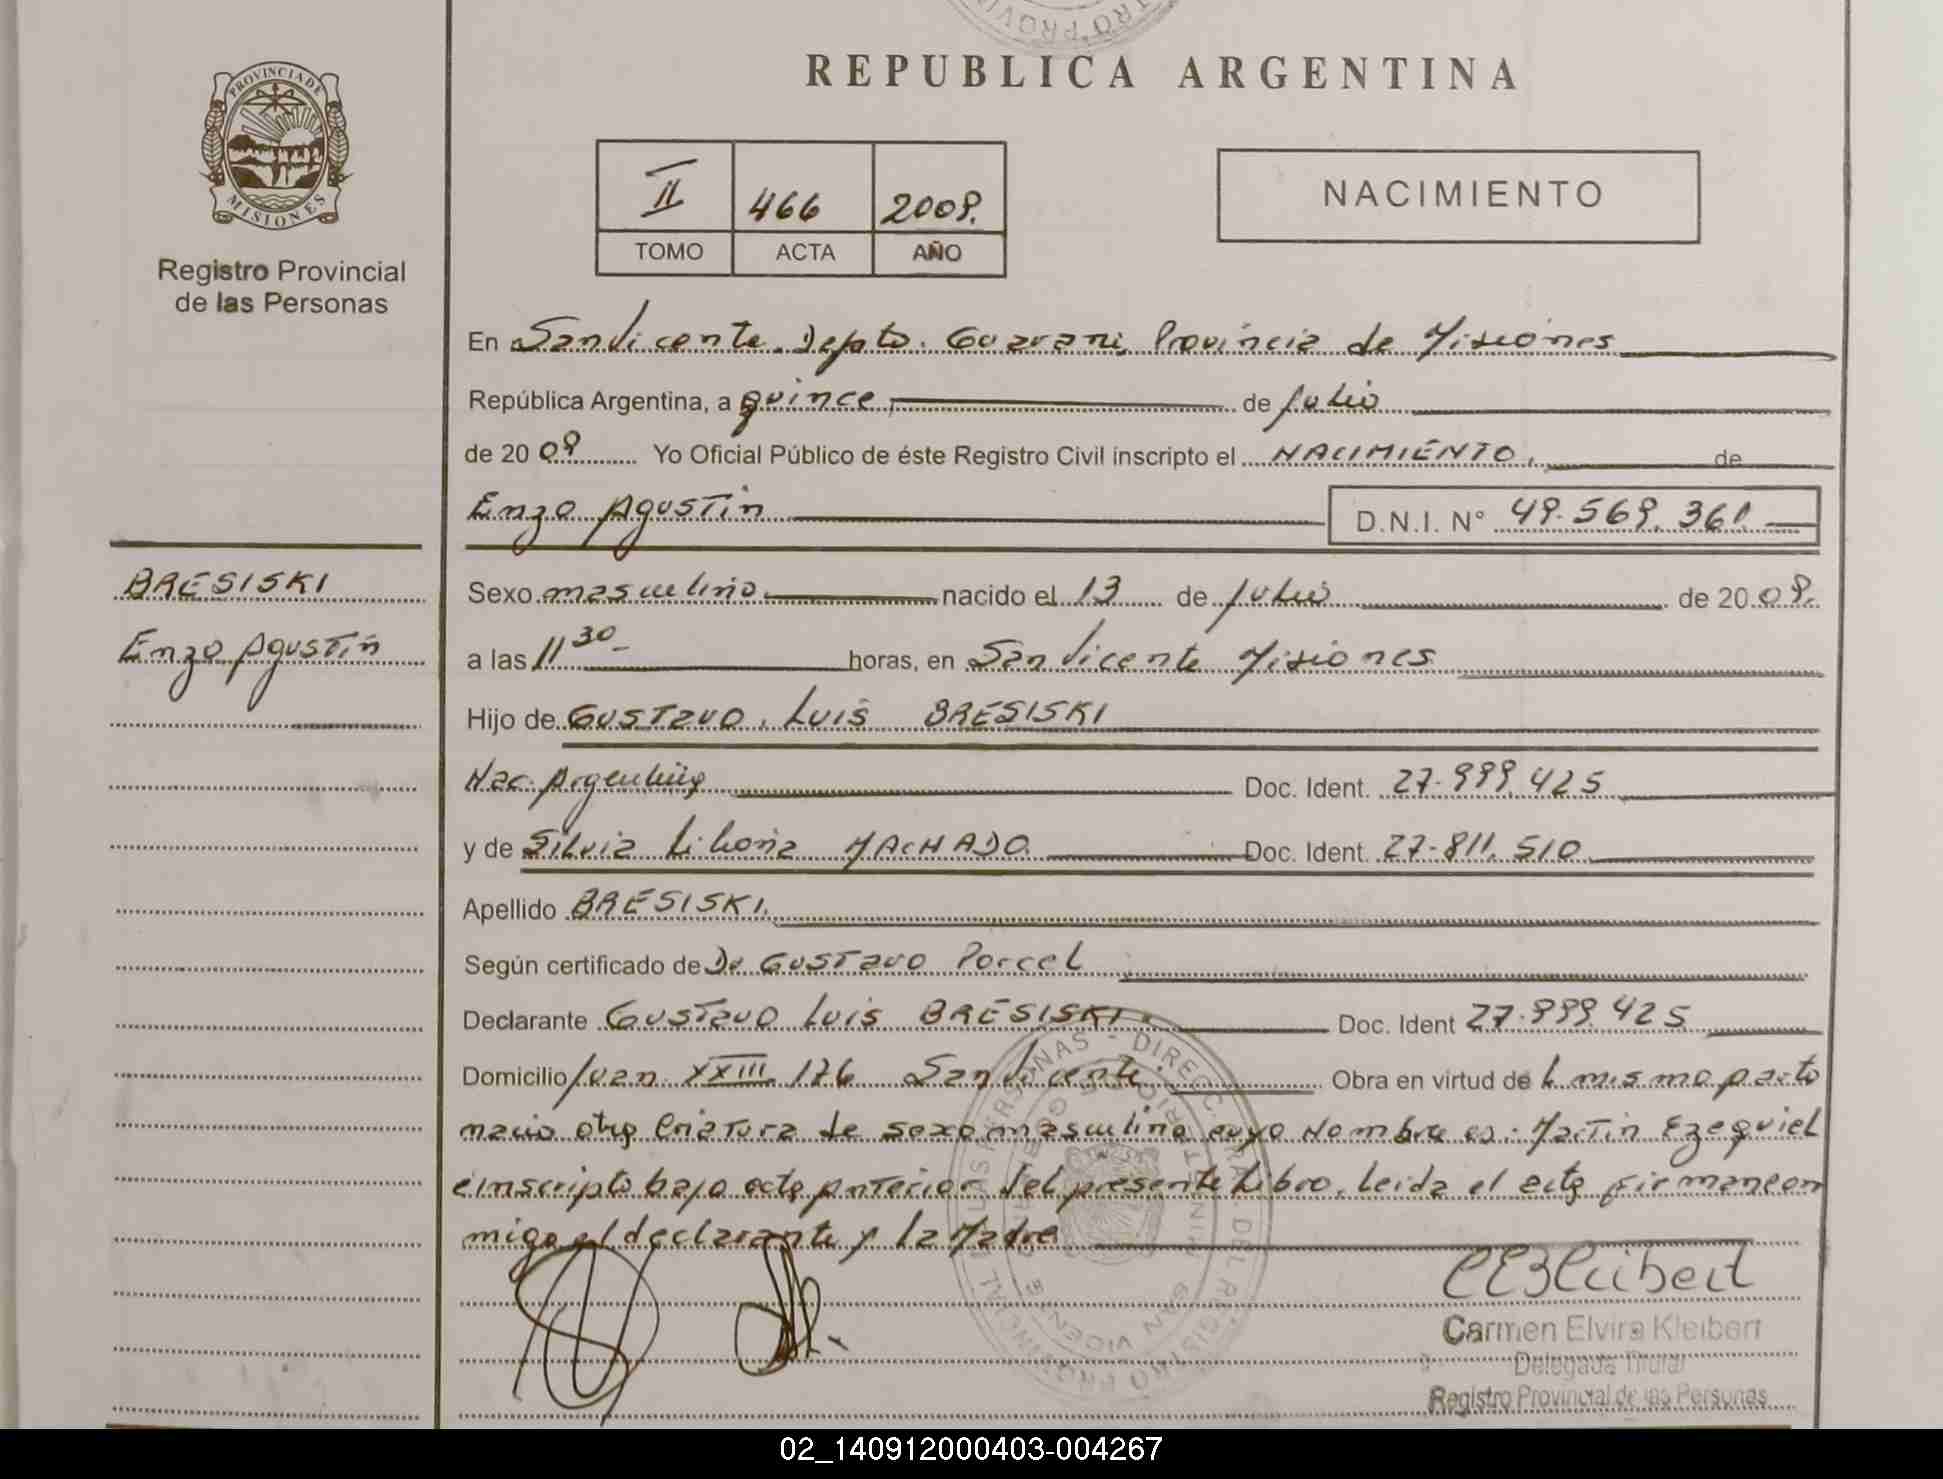 REPUBLICA ARGENTINA
PROVINCIA DE
MISIONES
Registro Provincial
de las Personas
II 466 2009.
TOMO ACTA AÑO
NACIMIENTO
En San Vicente. Depto. Guarani, Provincia de Misiones
República Argentina, a quince, de Julio
de 20 09 Yo Oficial Público de éste Registro Civil inscripto el NACIMIENTO, de
Enzo Agustin D.N.I. Nº 49.569.361.
BRESISKI
Enzo Agustín
Sexo masculino nacido el 13 de Julio de 20 09.
a las 11 30 horas, en San Vicente Misiones
Hijo de Gustavo, Luis BRESISKI
Nac. Argentina Doc. Ident. 27.999.425
y de Silvia Liliana MACHADO Doc. Ident. 27.811.510
Apellido BRESISKI.
Según certificado de Dr Gustavo Porcel
Declarante Gustavo Luis BRESISKI. Doc. Ident 27.999.425
Domicilio Juan XXIII 126 San Vicente. Obra en virtud de L mismo parto
nacio otra Criatura de sexo masculino cuyo Nombre es: Martin Ezequiel
e inscripto bajo acta Anterior del presente Libro. Leida el acta firman con
migo el declarante y la Madre
Carmen Elvira Kleibert
Delegada Titular
Registro Provincial de las Personas
02_140912000403-004267